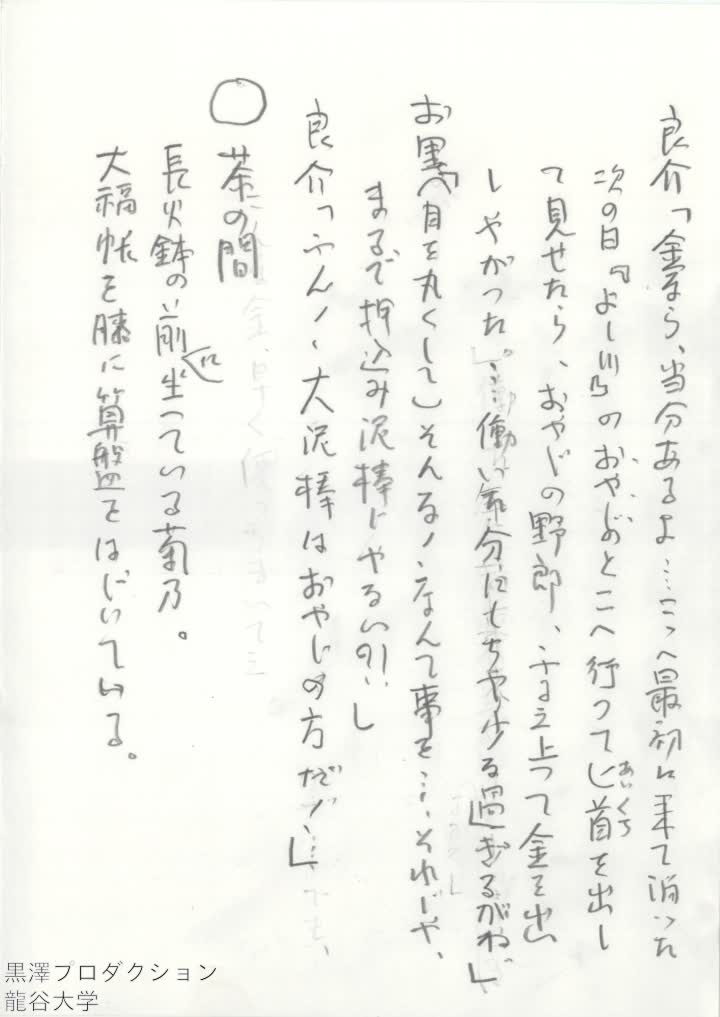 良介「金なら、当分あるよ……こゝへ最初に来て泊った
次の日『よし川』のおやじのとこへ行って匕首を出し
あいくち
て見せたら、おやじの野郎、ふるえ上って金を出
しやがった。……働い分にもちや少る過ぎるがね」
お墨（目を丸くして）そんな！なんて事を……それじゃ、
まるで押込み泥棒じゃないの!!」
良介「ふん！大泥棒はおやじの方だ！」
○　茶の間
長火鉢の前に坐っている菊乃。
大福帳を膝に算盤をはじいている。
黒澤プロダクション
龍谷大学